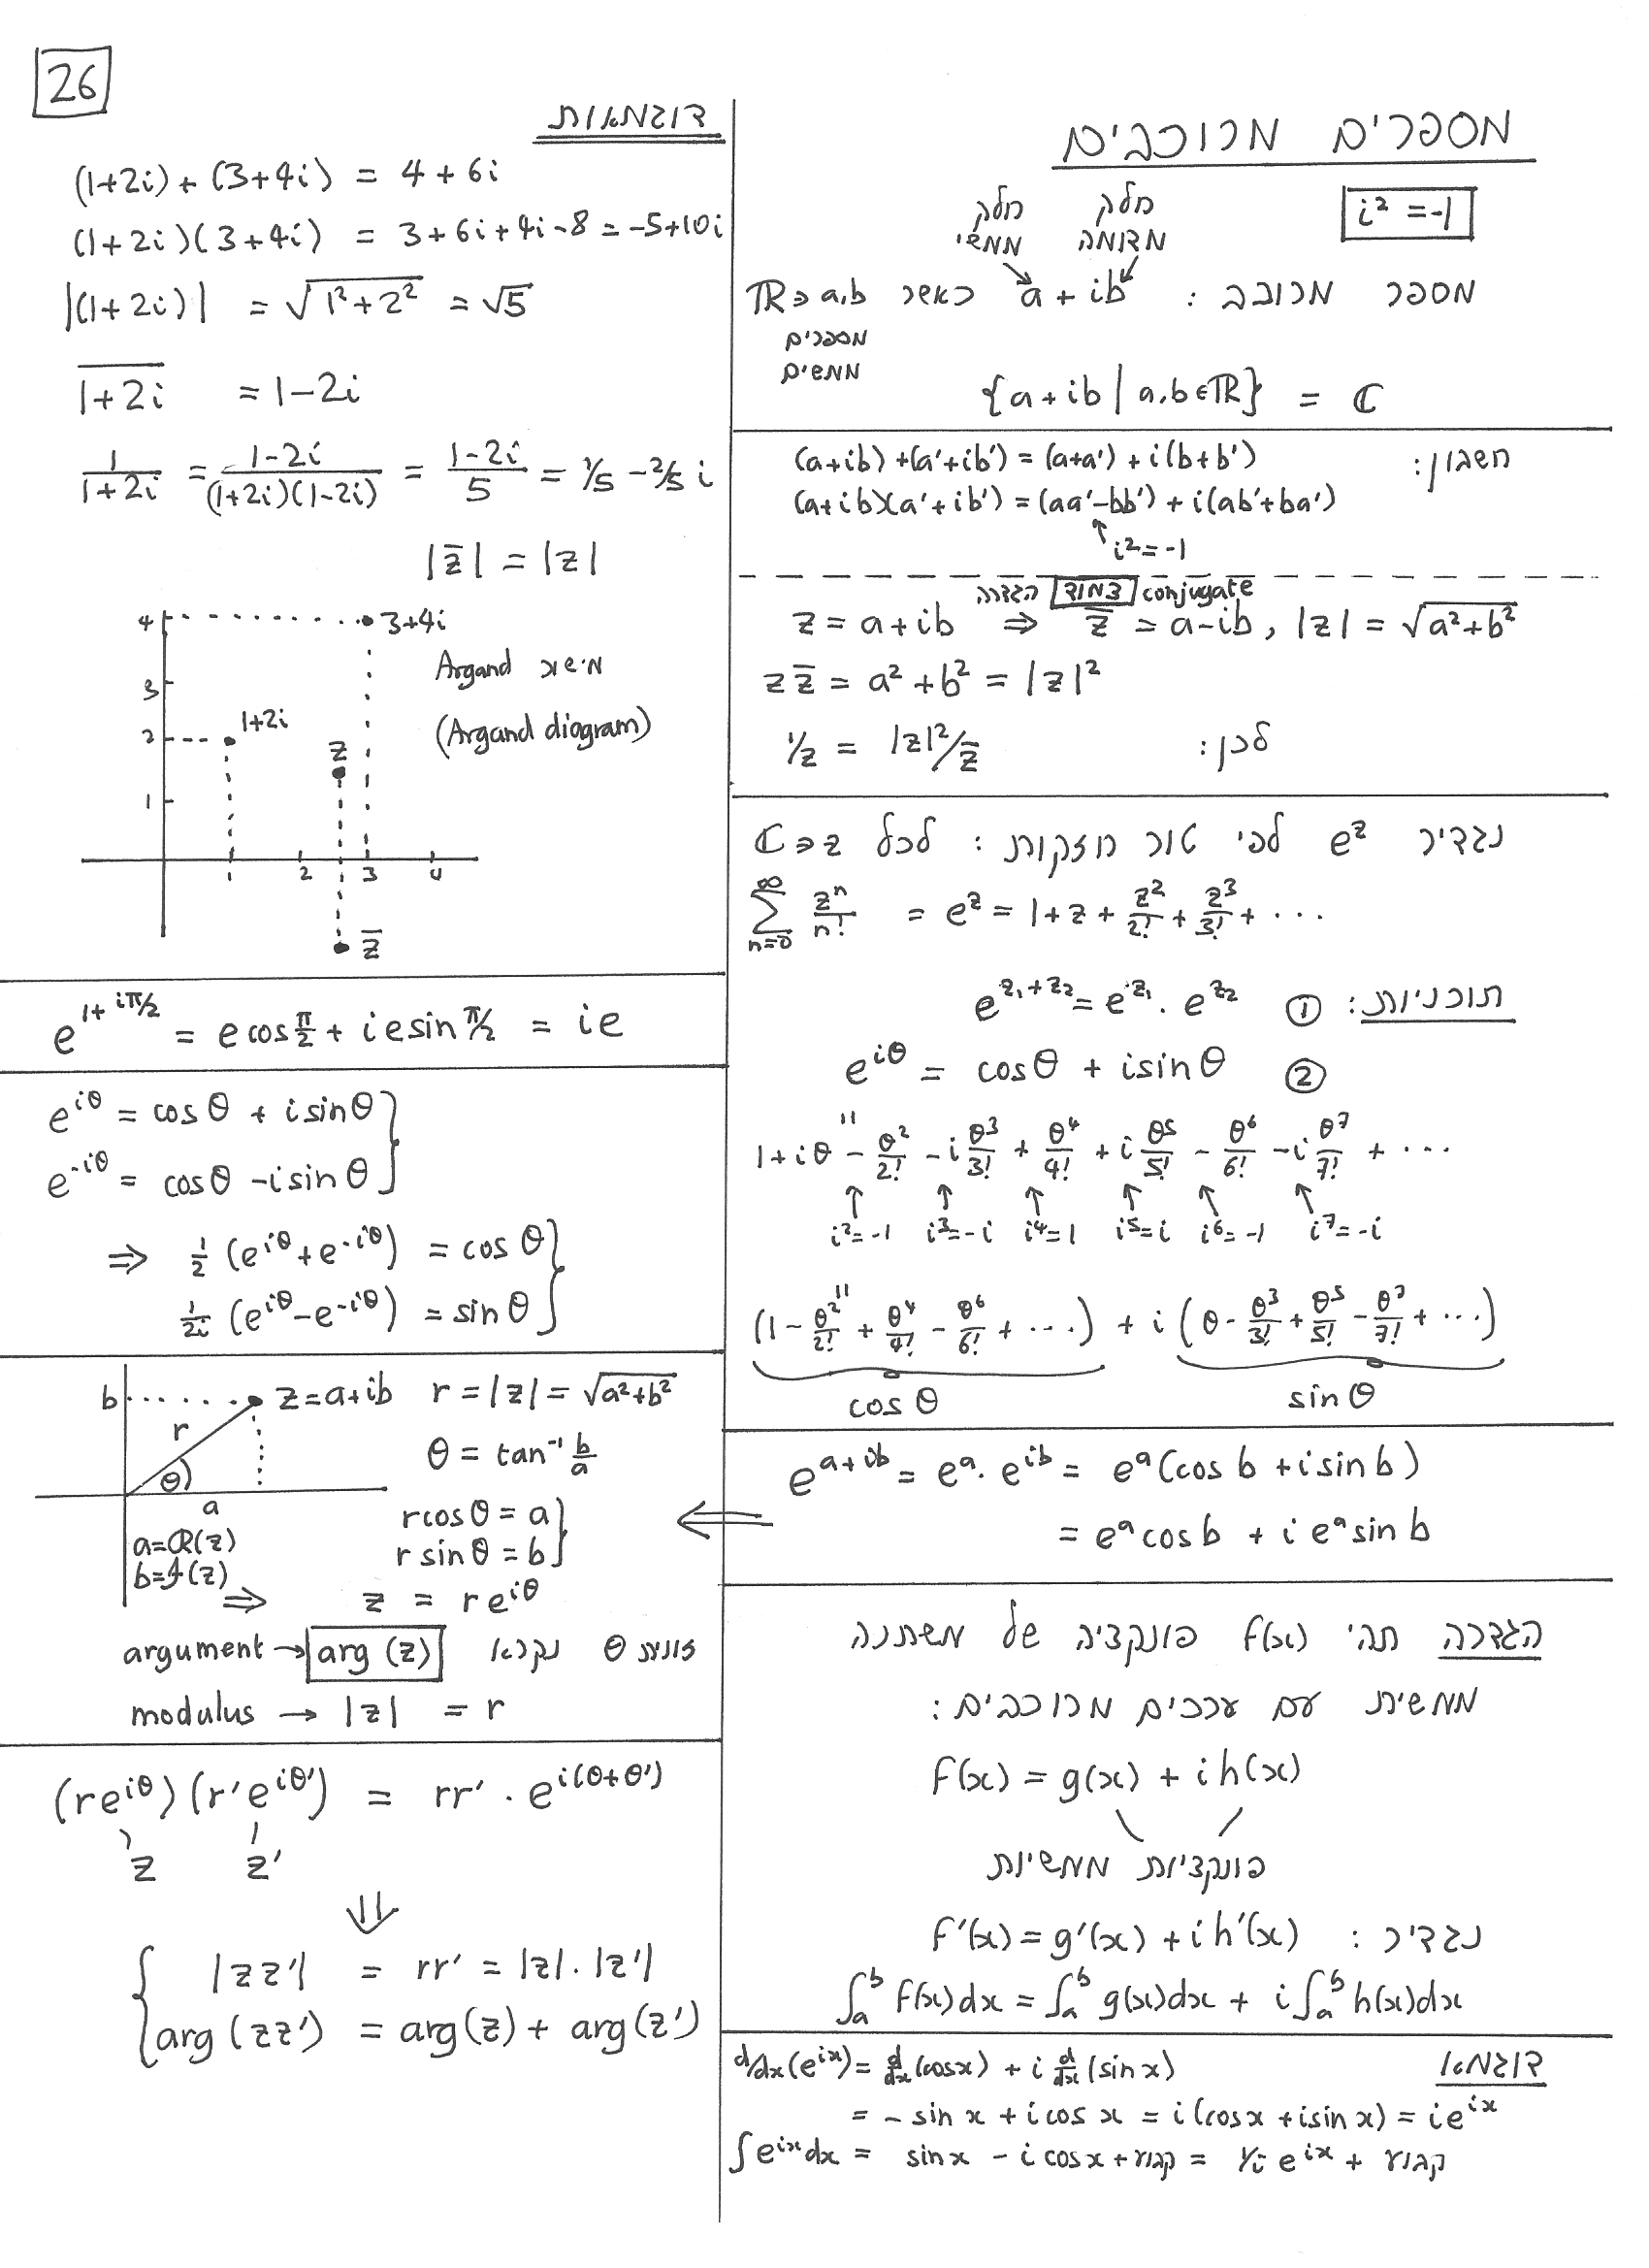 26
מספרים מרוכבים
i² = -1
חלק ממשי
חלק מדומה
מספר מרוכב : a + ib כאשר a,b ∈ ℝ
מספרים ממשים
{a+ib | a,b∈ℝ} = ℂ
חשבון:
(a+ib)+(a'+ib') = (a+a') + i(b+b')
(a+ib)(a'+ib') = (aa'-bb') + i(ab'+ba')
↑ i²=-1
הגדרה צמוד conjugate
z = a+ib ⇒ z̄ = a-ib, |z| = √(a²+b²)
z z̄ = a² + b² = |z|²
לכן: 1/z = |z|²/z̄
נגדיר e^z לפי טור חזקות : לכל z∈ℂ
∑_{n=0}^{∞} zⁿ/n! = e^z = 1 + z + z²/2! + z³/3! + ...
תוכניות: ① e^{z₁+z₂} = e^{z₁} . e^{z₂}
② e^{iθ} = cosθ + isinθ
"
1+iθ - θ²/2! - i θ³/3! + θ⁴/4! + i θ⁵/5! - θ⁶/6! - i θ⁷/7! + ...
↑ ↑ ↑ ↑ ↑ ↑
i²=-1 i³=-i i⁴=1 i⁵=i i⁶=-1 i⁷=-i
"
(1 - θ²/2! + θ⁴/4! - θ⁶/6! + ...) + i (θ - θ³/3! + θ⁵/5! - θ⁷/7! + ...)
cos θ sin θ
e^{a+ib} = e^a . e^{ib} = e^a (cos b + isin b)
= e^a cos b + i e^a sin b
⇐
הגדרה תהי f(x) פונקציה של משתנה
ממשית עם ערכים מרוכבים:
f(x) = g(x) + i h(x)
פונקציות ממשיות
נגדיר : f'(x) = g'(x) + i h'(x)
∫_a^b f(x)dx = ∫_a^b g(x)dx + i∫_a^b h(x)dx
דוגמא
d/dx(e^{ix}) = d/dx(cosx) + i d/dx(sin x)
= - sin x + i cos x = i(cosx + isin x) = ie^{ix}
∫e^{ix}dx = sinx - i cosx + קבוע = 1/i e^{ix} + קבוע
דוגמאות
(1+2i) + (3+4i) = 4 + 6i
(1+2i)(3+4i) = 3+6i+4i-8 = -5+10i
|(1+2i)| = √(1²+2²) = √5
\overline{1+2i} = 1-2i
1/(1+2i) = (1-2i)/((1+2i)(1-2i)) = (1-2i)/5 = 1/5 - 2/5 i
|z̄| = |z|
4 3+4i
3 Argand מישור
2 1+2i (Argand diagram)
z
1
1 2 3 4
z̄
e^{1+iπ/2} = e cos π/2 + i e sin π/2 = ie
e^{iθ} = cos θ + i sinθ
e^{-iθ} = cosθ - i sin θ
⇒ 1/2 (e^{iθ} + e^{-iθ}) = cos θ
1/2i (e^{iθ} - e^{-iθ}) = sin θ
b z = a+ib r = |z| = √(a²+b²)
r
θ θ = tan⁻¹ b/a
a
rcosθ = a
r sinθ = b
a=ℛ(z)
b=ℐ(z)
⇒ z = re^{iθ}
argument → arg (z) זוית θ נקרא
modulus → |z| = r
(re^{iθ})(r'e^{iθ'}) = rr' . e^{i(θ+θ')}
z z'
⇓
|zz'| = rr' = |z|.|z'|
arg (zz') = arg(z) + arg(z')